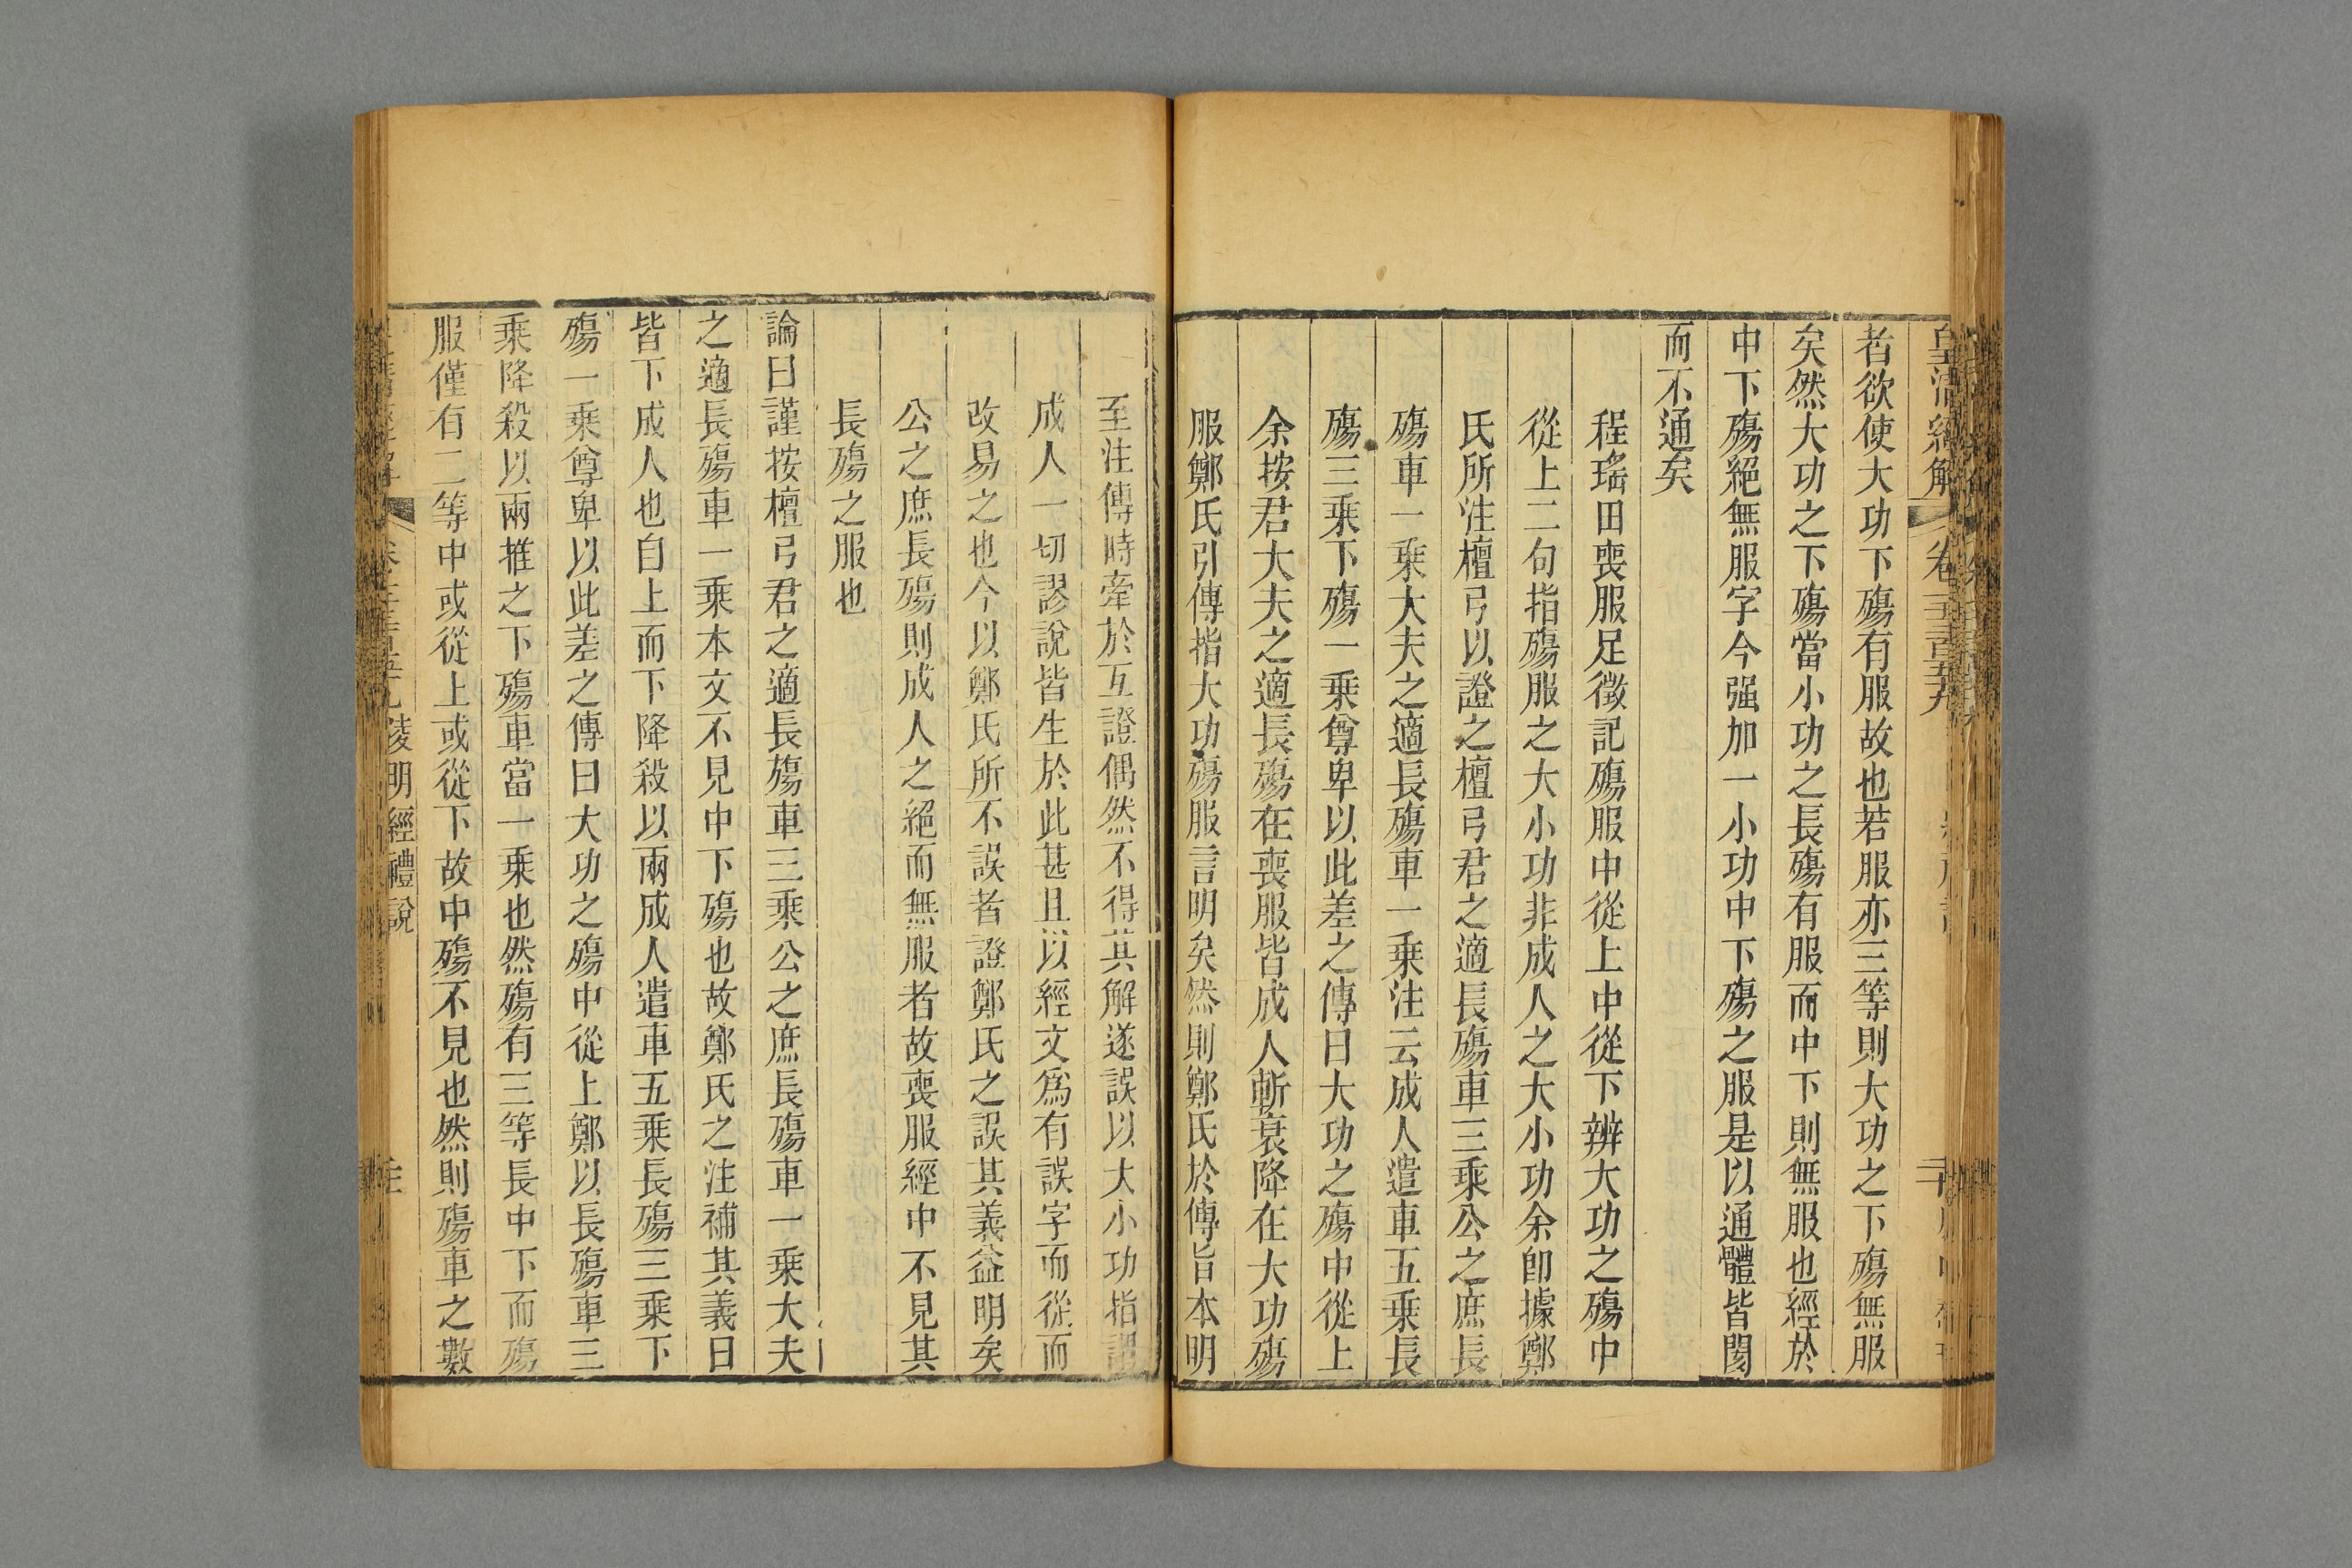 皇清經解
卷千三百五十九
者欲使大功下殤有服故也若服亦三等則大功之下殤無服
矣然大功之下殤當小功之長殤有服而中下則無服也經於
中下殤絕無服字今强加一小功中下殤之服是以通體皆閡
而不通矣
程瑤田喪服足徵記殤服中從上中從下辨大功之殤中
從上二句指殤服之大小功非成人之大小功余卽據鄭
氏所注檀弓以證之檀弓君之適長殤車三乘公之庶長
殤車一乘大夫之適長殤車一乘注云成人遣車五乘長
殤三乘下殤一乘尊卑以此差之傳曰大功之殤中從上
余按君大夫之適長殤在喪服皆成人斬衰降在大功殤
服鄭氏引傳指大功殤服言明矣然則鄭氏於傳旨本明
至注傳時牽於互證偶然不得其解遂誤以大小功指謂
成人一切謬說皆生於此甚且以經文爲有誤字而從而
改易之也今以鄭氏所不誤者證鄭氏之誤其義益明矣
公之庶長殤則成人之絕而無服者故喪服經中不見其
長殤之服也
論曰謹按檀弓君之適長殤車三乘公之庶長殤車一乘大夫
之適長殤車一乘本文不見中下殤也故鄭氏之注補其義曰
皆下成人也自上而下降殺以兩成人遣車五乘長殤三乘下
殤一乘尊卑以此差之傳曰大功之殤中從上鄭以長殤車三
乘降殺以兩推之下殤車當一乘也然殤有三等長中下而殤
服僅有二等中或從上或從下故中殤不見也然則殤車之數
凌明經禮說